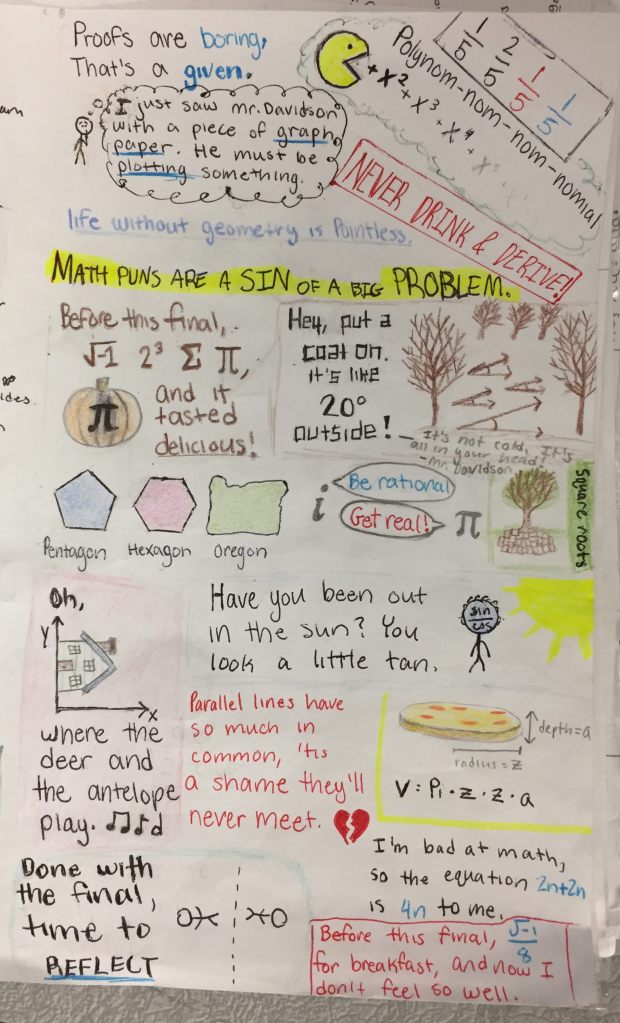 Proofs are boring,
That's a given.
I just saw mr. Davidson
with a piece of graph
paper. He must be
plotting something.
+ x² + x³ + x⁴ + x⁵
Polynom-nom-nom-nomial
1/5 2/5 1/5 1/5
NEVER DRINK & DERIVE!
life without geometry is Pointless.
MATH PUNS ARE A SIN OF A BIG PROBLEM.
Before this final,
√-1 2³ Σ π,
and it
tasted
delicious!
π
Hey, put a
coat on.
it's like
20°
outside!
- It's not cold, It's
all in your head!
-Mr. Davidson
Pentagon Hexagon Oregon
i Be rational
Get real! π
Square roots
Oh,
y
x
where the
deer and
the antelope
play.
Have you been out
in the sun? You
look a little tan.
sin
cos
Parallel lines have
so much in
common, 'tis
a shame they'll
never meet.
depth=a
radius=z
V= Pi·z·z·a
I'm bad at math,
so the equation 2n+2n
is 4n to me.
Done with
the final,
time to
REFLECT
Before this final, √-1/8
for breakfast, and now I
don't feel so well.